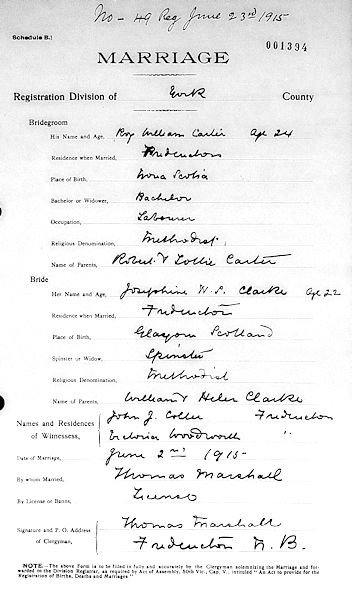 No - 49 Reg June 23rd 1915
Schedule B.
001394
MARRIAGE
Registration Division of York County
Bridegroom
His Name and Age, Roy William Carter Age 24
Residence when Married, Fredericton
Place of Birth, Nova Scotia
Bachelor or Widower, Bachelor
Occupation, Labourer
Religious Denomination, Methodist,
Name of Parents, Robert & Lottie Carter
Bride
Her Name and Age, Josephine W. S. Clarke Age 22
Residence when Married, Fredericton
Place of Birth, Glasgow Scotland
Spinster or Widow, Spinster
Religious Denomination, Methodist
Name of Parents, William & Helen Clarke
Names and Residences of Witnessess, John J. Fredericton
Victoria Woodworth "
Date of Marriage, June 2nd 1915
By whom Married, Thomas Marshall
By License or Banns, License
Signature and P. O. Address of Clergyman, Thomas Marshall
Fredericton N. B.
NOTE.—The above Form is to be filled in fully and accurately by the Clergyman solemnizing the Marriage and for-
warded to the Division Registrar, as required by Act of Assembly, 50th Vic., Cap. V., intituled "An Act to provide for the
Registration of Births, Deaths and Marriages."